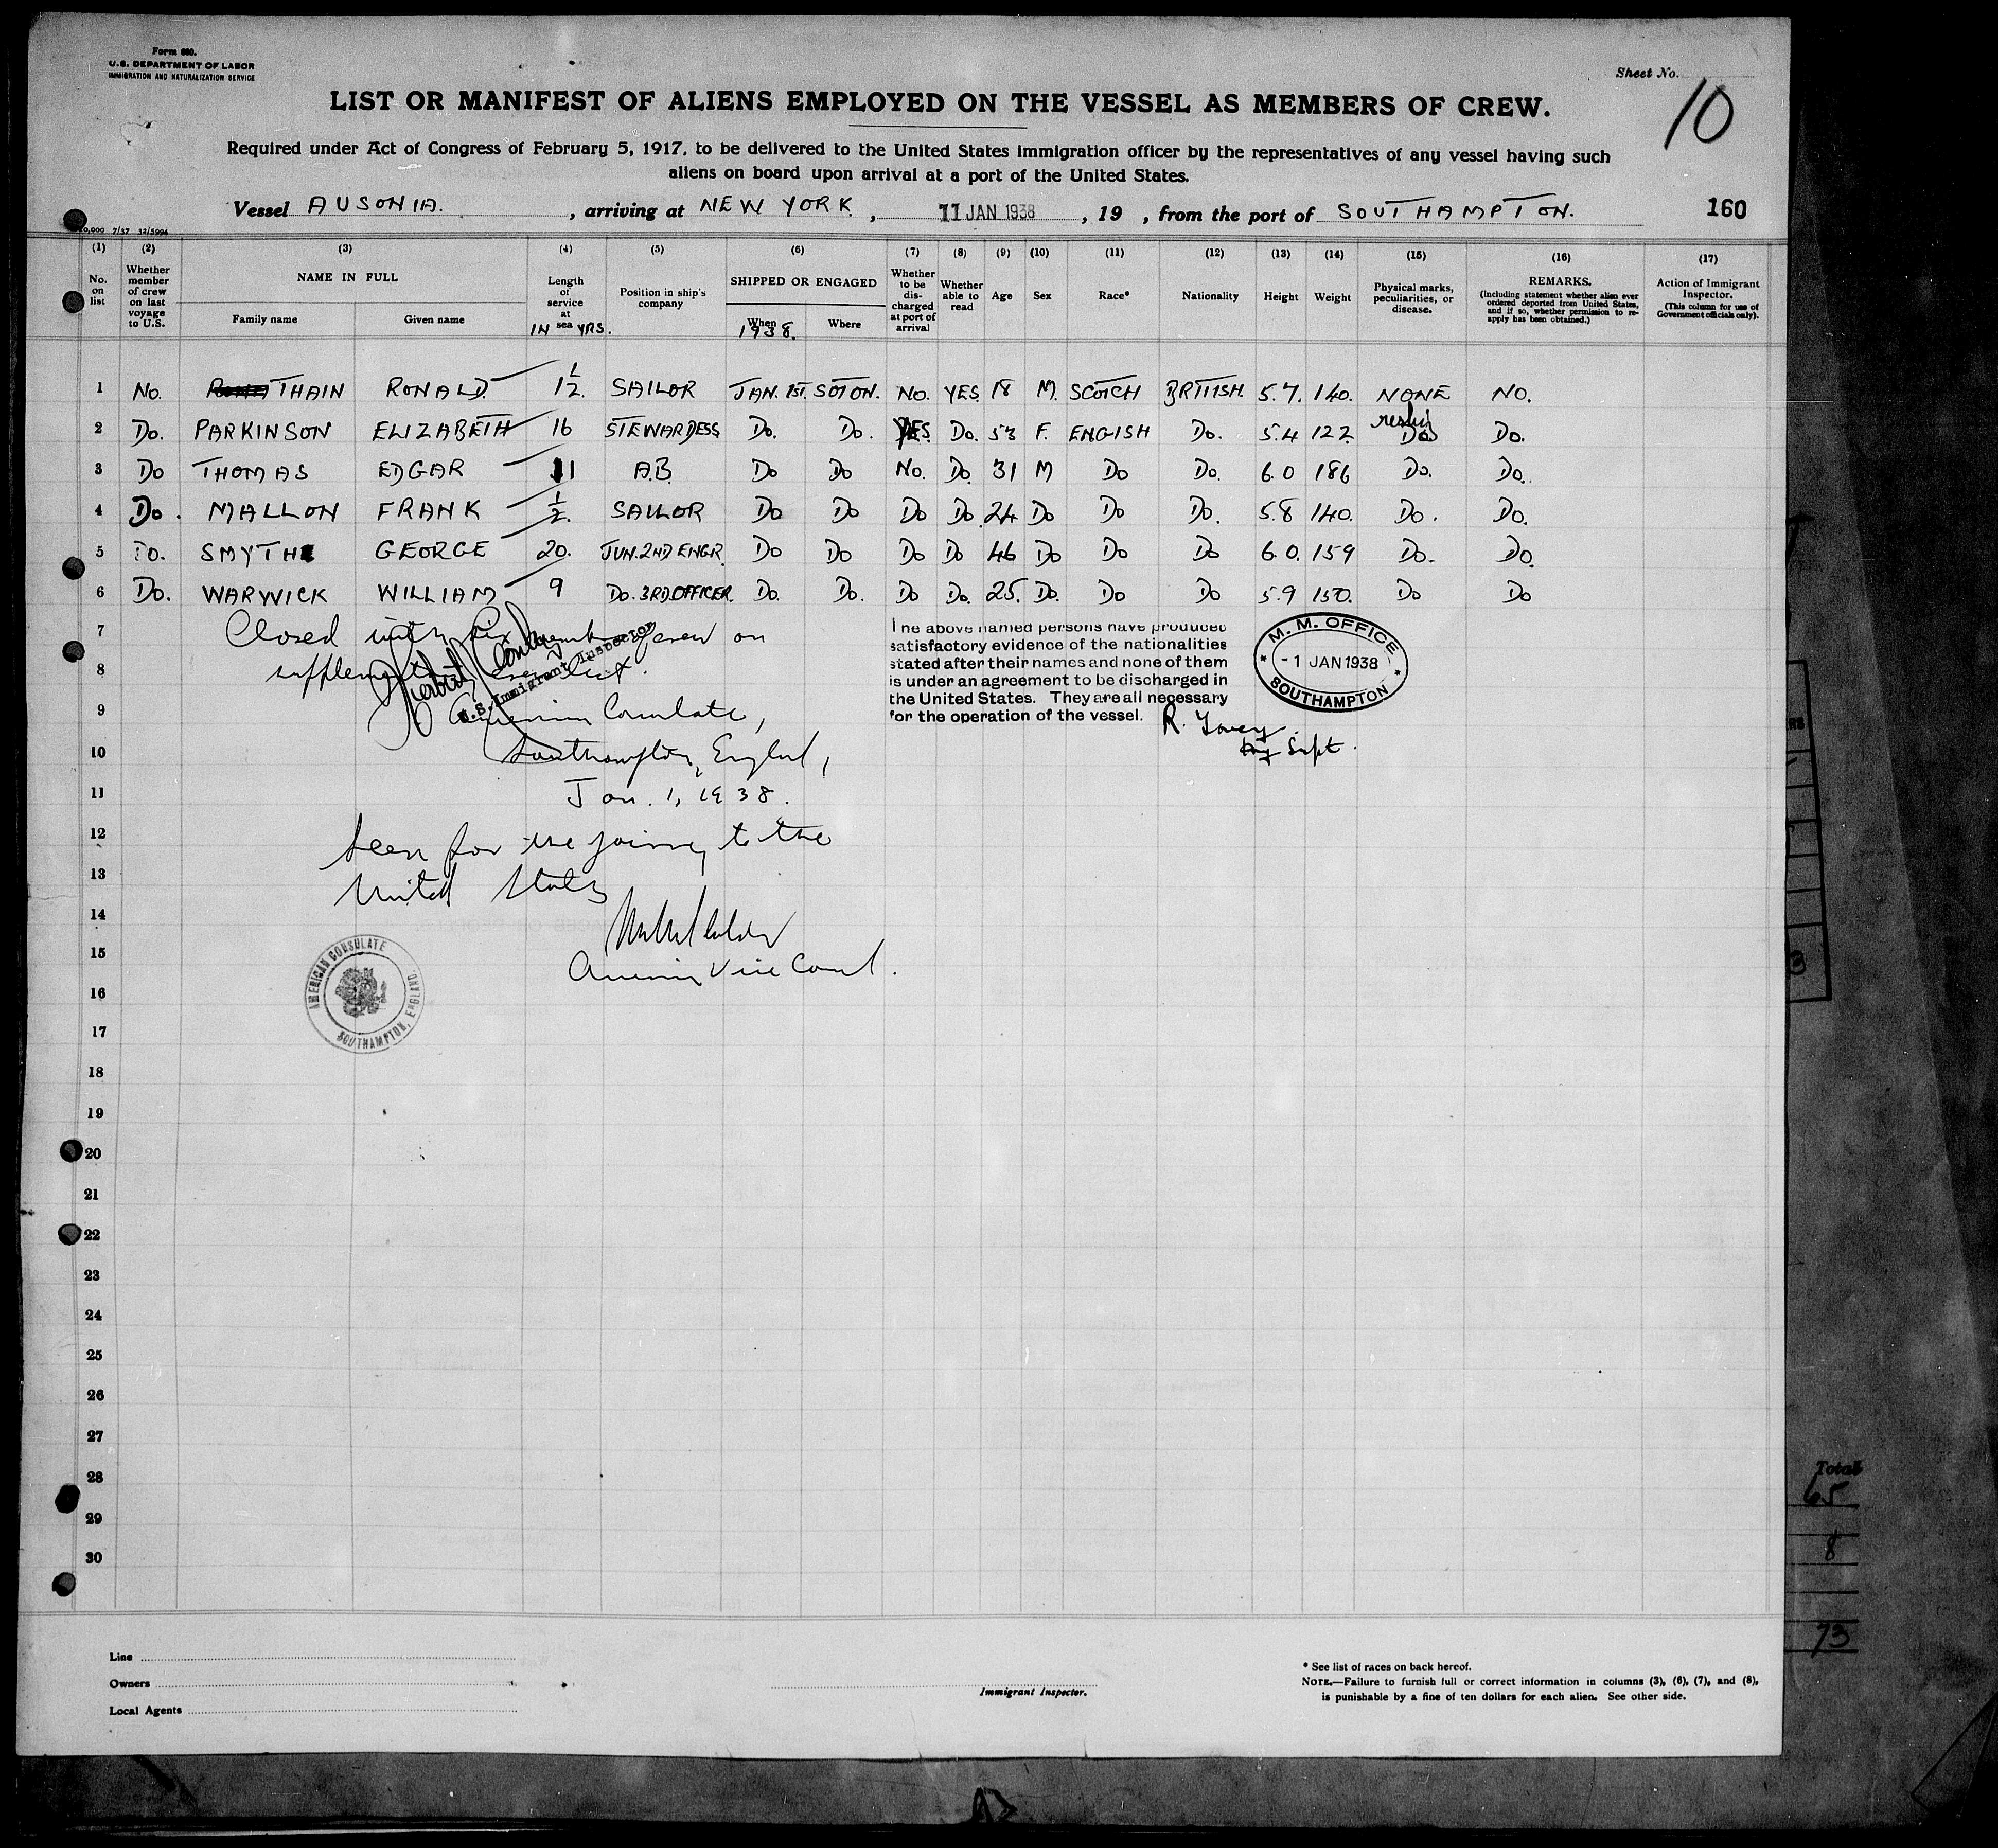 Form 680.
U.S. DEPARTMENT OF LABOR
IMMIGRATION AND NATURALIZATION SERVICE
Sheet No.
10
LIST OR MANIFEST OF ALIENS EMPLOYED ON THE VESSEL AS MEMBERS OF CREW.
Required under Act of Congress of February 5, 1917, to be delivered to the United States immigration officer by the representatives of any vessel having such
aliens on board upon arrival at a port of the United States.
Vessel AUSONIA. , arriving at NEW YORK , 11 JAN 1938 , 19 , from the port of SOUTHAMPTON. 160
0,000 7/37 32/5994
(1) (2) (3) (4) (5) (6) (7) (8) (9) (10) (11) (12) (13) (14) (15) (16) (17)
No. on list Whether member of crew on last voyage to U.S. NAME IN FULL Family name Given name Length of service at sea IN YRS. Position in ship's company SHIPPED OR ENGAGED When 1938. Where Whether to be discharged at port of arrival Whether able to read Age Sex Race* Nationality Height Weight Physical marks, peculiarities, or disease. REMARKS. (Including statement whether alien ever ordered deported from United States, and if so, whether permission to re-apply has been obtained.) Action of Immigrant Inspector. (This column for use of Government officials only).
1 No. THAIN RONALD. 1½ SAILOR JAN. 1ST. SOTON. No. YES 18 M. SCOTCH BRITISH. 5.7. 140. NONE NO.
2 Do. PARKINSON ELIZABETH 16 STEWARDESS Do. Do. YES. Do. 53 F. ENGISH Do. 5.4 122 Do Do.
3 Do THOMAS EDGAR 11 A.B. Do Do No. Do. 31 M Do Do. 6.0 186 Do. Do.
4 Do. MALLON FRANK ½. SAILOR Do Do Do Do. 24 Do Do Do. 5.8 140. Do. Do.
5 Do. SMYTH GEORGE 20. JUN. 2ND ENGR Do Do Do Do 46 Do Do Do 6.0. 159 Do. Do.
6 Do. WARWICK WILLIAM 9 Do. 3RD. OFFICER. Do. Do. Do Do. 25. Do. Do Do 5.9 150. Do Do
7 Closed with six members crew on
8 supplementary crew list.
U.S. Immigrant Inspector
The above named persons have produced
satisfactory evidence of the nationalities
stated after their names and none of them
is under an agreement to be discharged in
the United States. They are all necessary
for the operation of the vessel.
M. M. OFFICE
- 1 JAN 1938
SOUTHAMPTON
Supt.
9 American Consulate,
10 Southampton, England,
11 Jan. 1, 1938.
12 Seen for the journey to the
13 United States
14
15 American Vice Consul.
AMERICAN CONSULATE
SOUTHAMPTON, ENGLAND.
16
17
18
19
20
21
22
23
24
25
26
27
28
29
30
Total
65
8
73
Line
Owners
Local Agents
Immigrant Inspector.
* See list of races on back hereof.
NOTE.—Failure to furnish full or correct information in columns (3), (6), (7), and (8),
is punishable by a fine of ten dollars for each alien. See other side.